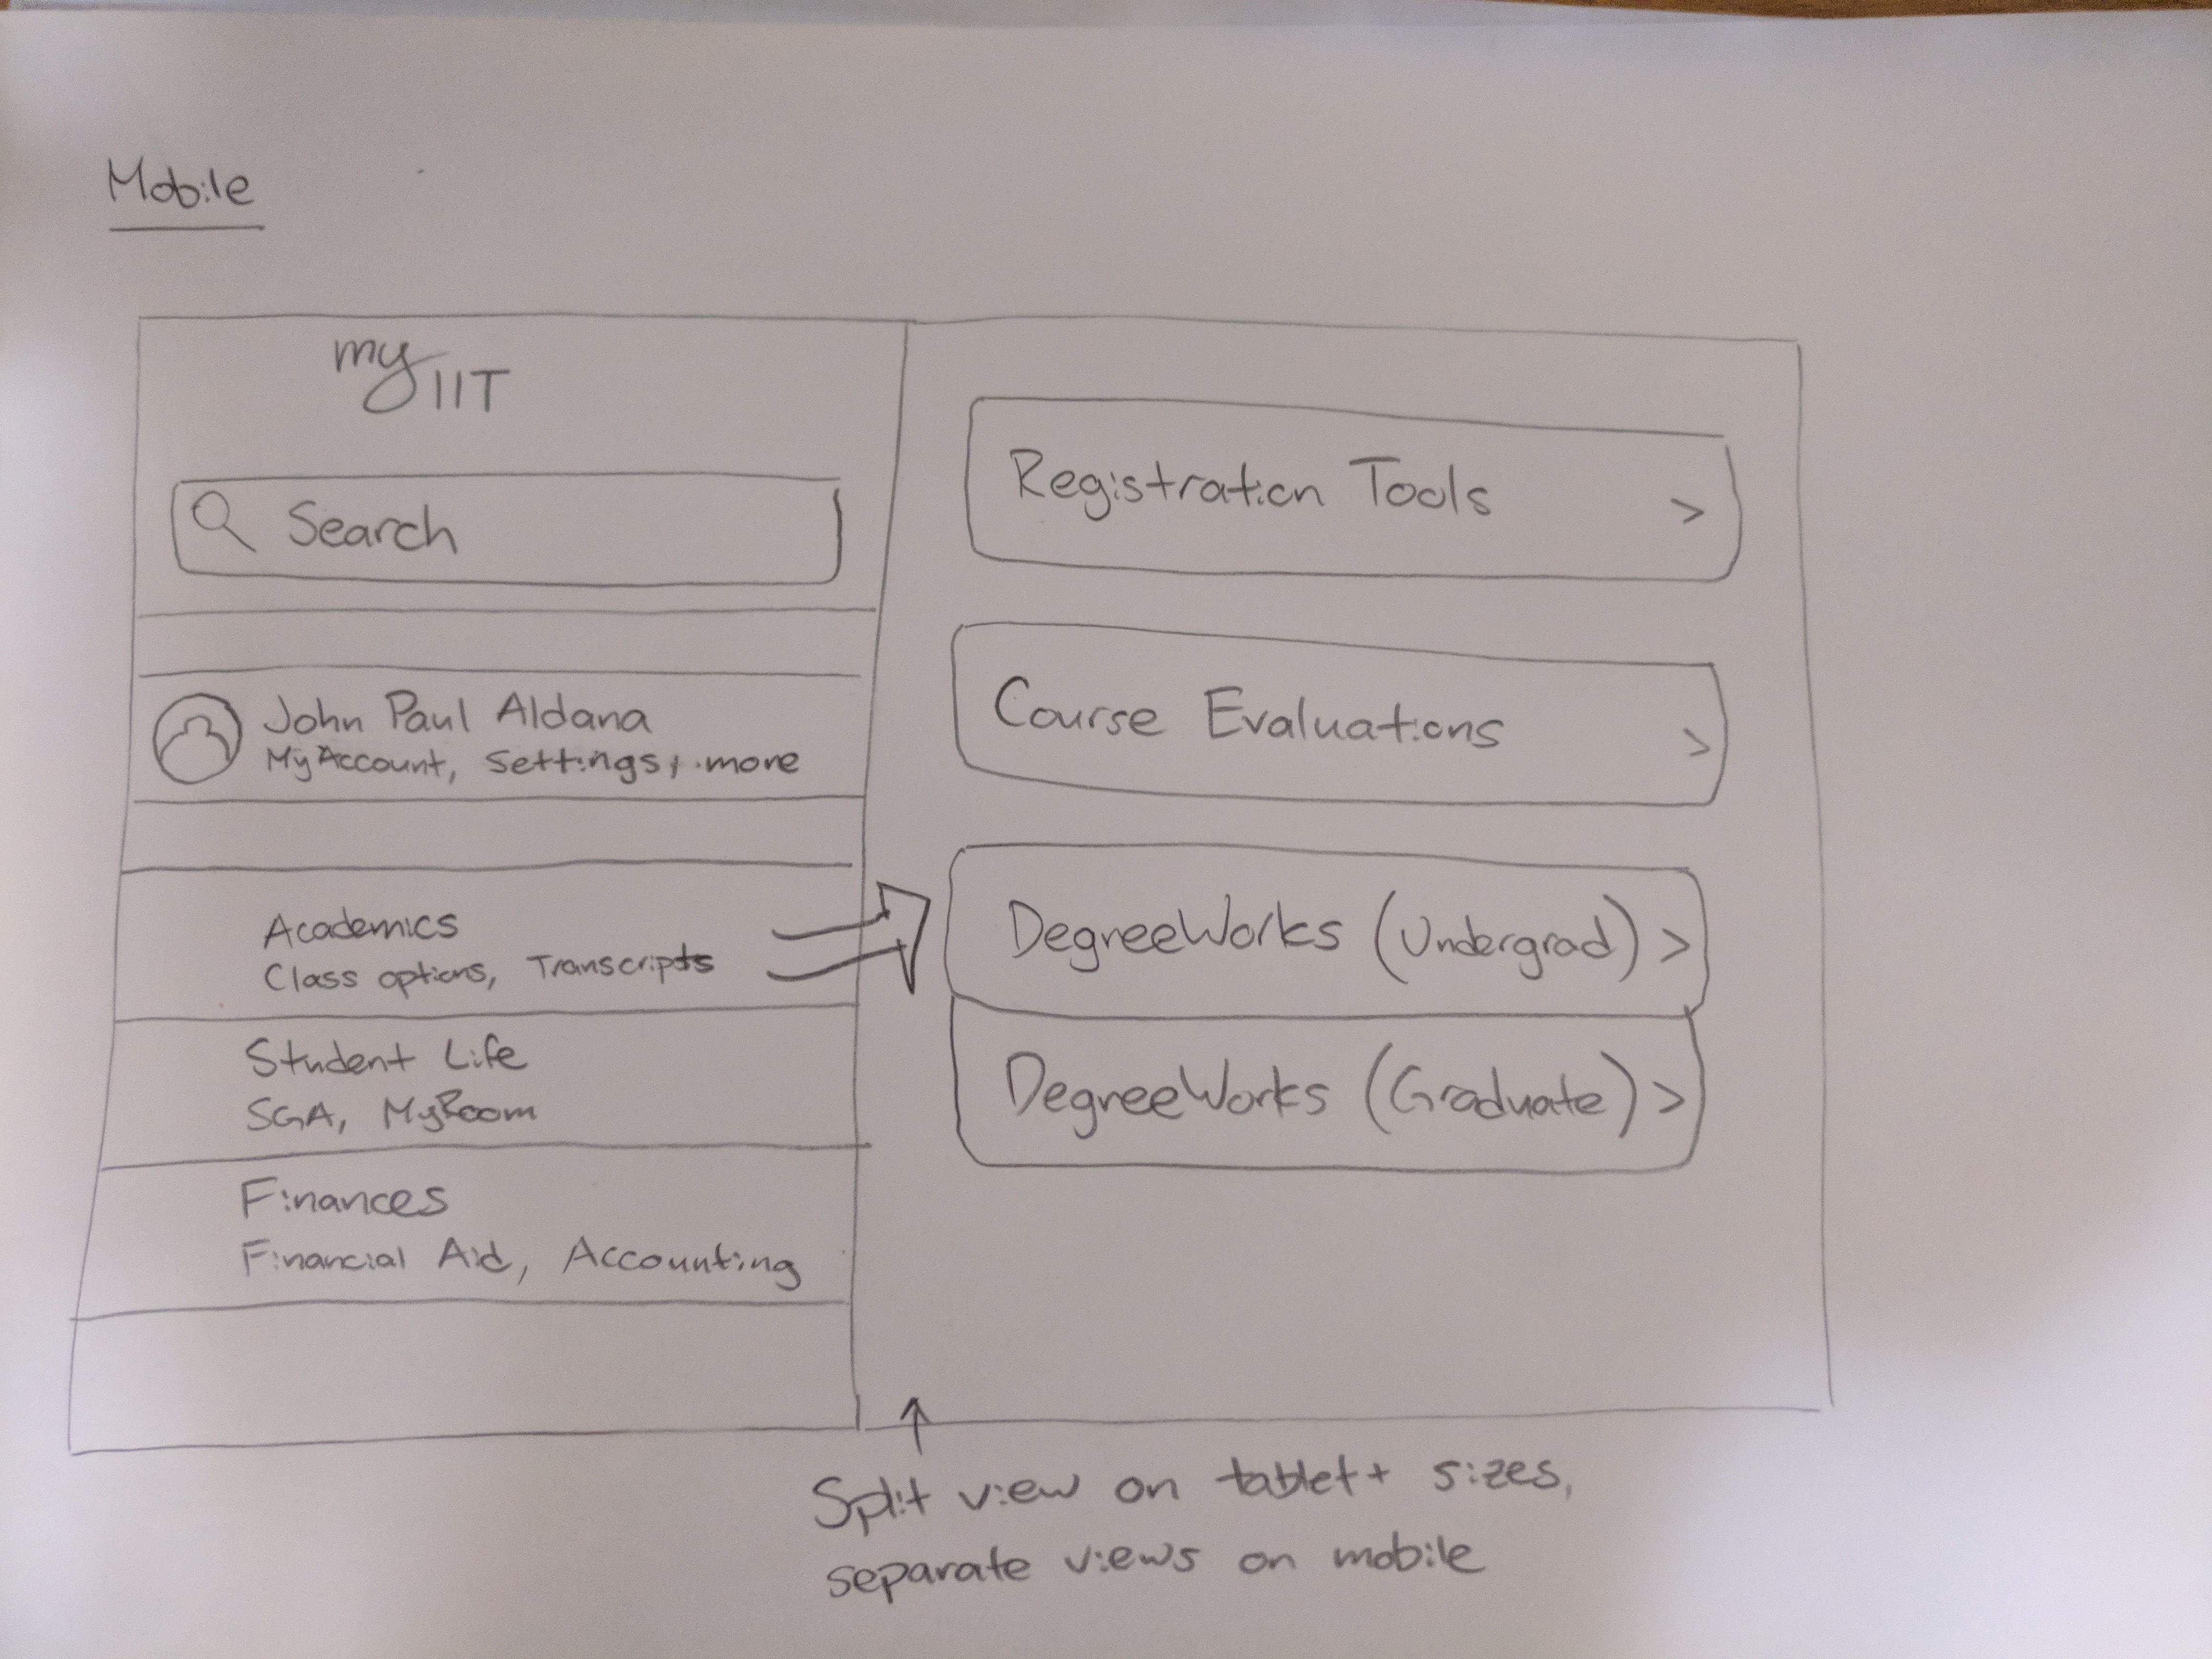 Mobile
my IIT
Search
John Paul Aldana
MyAccount, Settings, more
Academics
Class options, Transcripts
Student Life
SGA, MyRoom
Finances
Financial Aid, Accounting
Registration Tools >
Course Evaluations >
DegreeWorks (Undergrad) >
DegreeWorks (Graduate) >
Split view on tablet+ sizes,
separate views on mobile